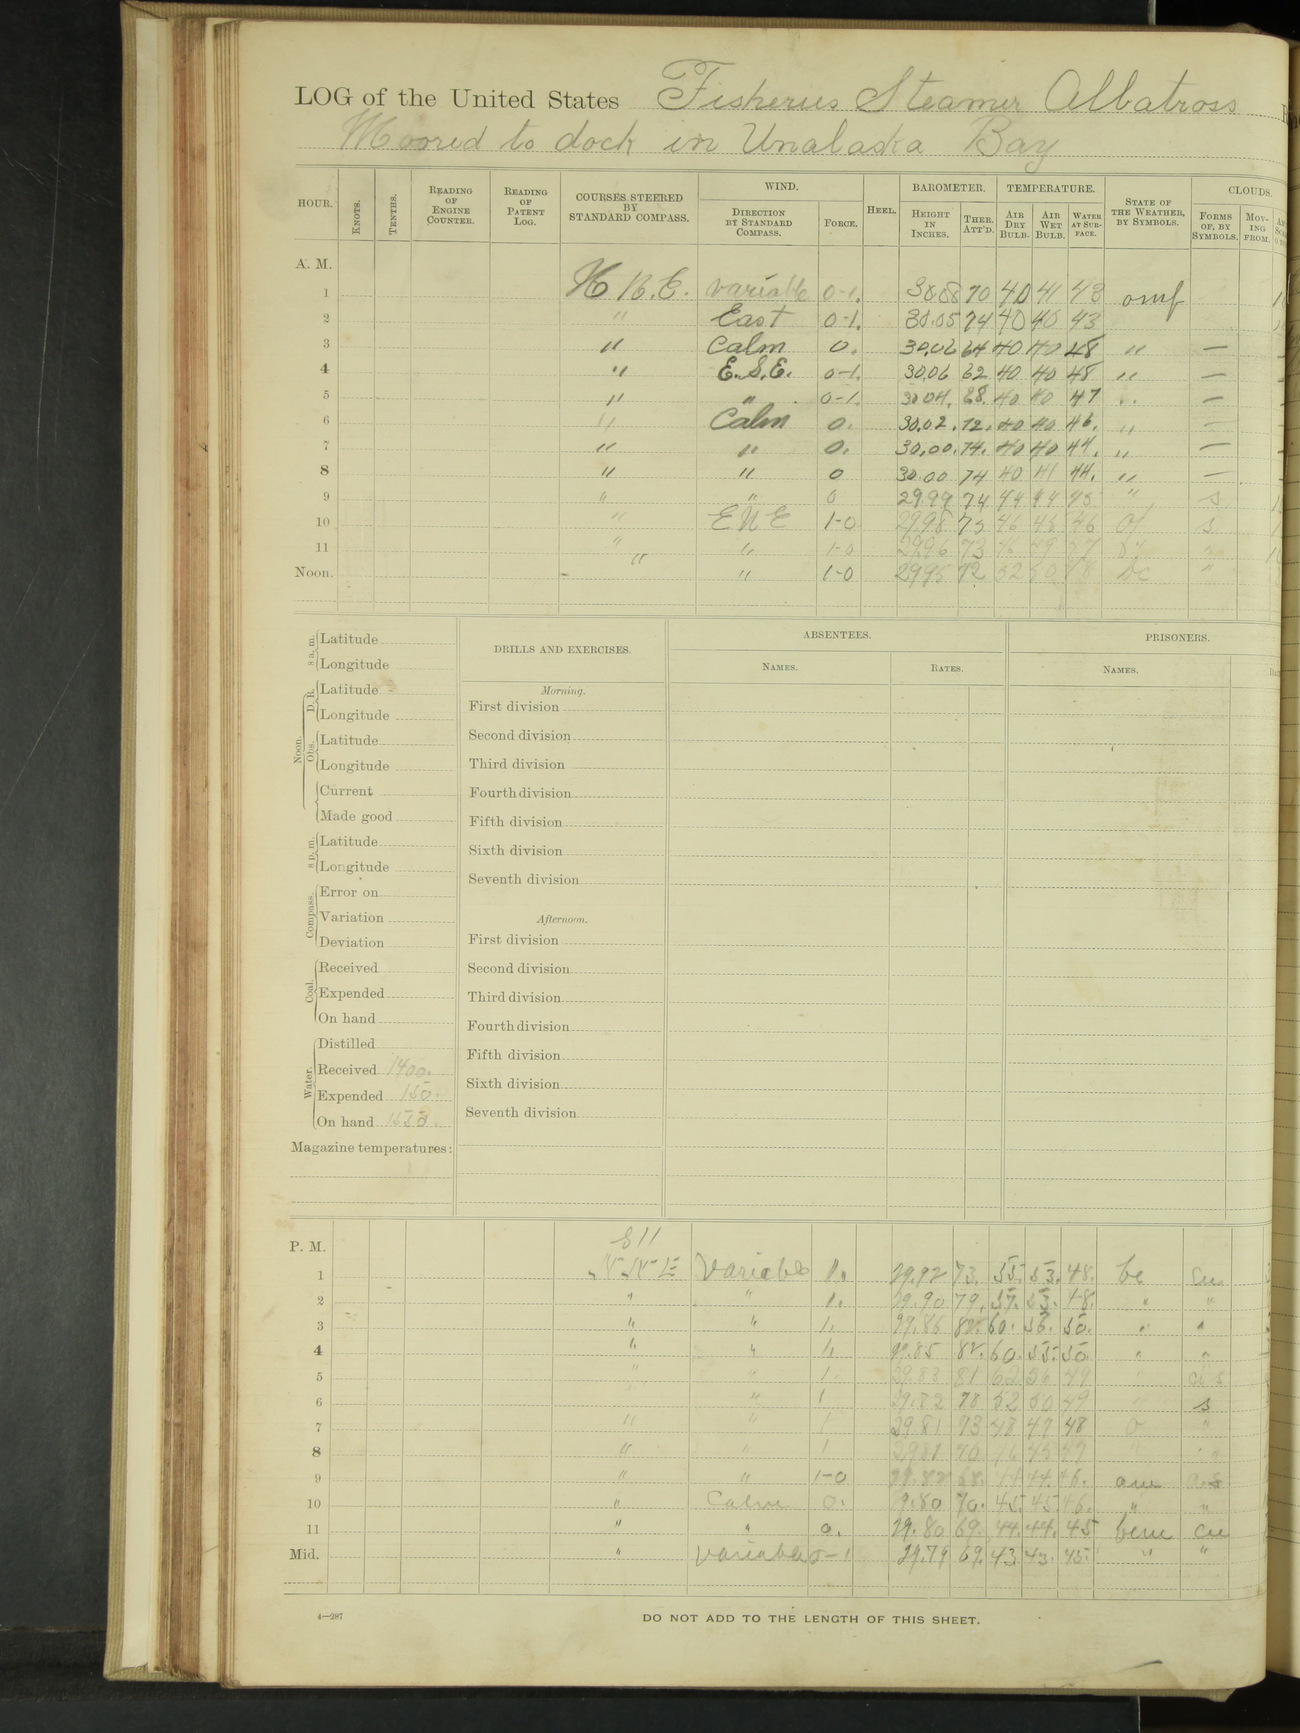 LOG of the United States Fisheries Steamer Albatross
Moored to dock in Unalaska Bay
HOUR. KNOTS. TENTHS. READING OF ENGINE COUNTER. READING OF PATENT LOG. COURSES STEERED BY STANDARD COMPASS. WIND. DIRECTION BY STANDARD COMPASS. FORCE. HEEL. BAROMETER. HEIGHT IN INCHES. THER. ATT'D. TEMPERATURE. AIR DRY BULB. AIR WET BULB. WATER AT SURFACE. STATE OF THE WEATHER, BY SYMBOLS. CLOUDS. FORMS OF, BY SYMBOLS. MOVING FROM.
A. M.
1 variable 0-1. 70 40 41 43 omf
2 " East 0-1. 30.05 74 40 40 43
3 " Calm 0. 30.06 64 40 40 48 " —
4 " E.S.E. 0-1. 30.06 62 40 40 48 " —
5 " " 0-1. 30.04. 68. 40 40 47 " —
6 " Calm 0. 30.02. 72. 40 40 46. " —
7 " " 0. 30.00. 74. 40 40 44. " —
8 " " 0 30.00 74 40 41 44. " —
9 " " 0 29.99 74 44 44 45 " s
10 " ENE 1-0 29.98 73 46 45 46 s
11 " " 1-0 29.96 73 "
Noon. " " 1-0 29.95 72 52 50 48 bc "
8 a. m. Latitude
Longitude
Noon. D. R. Latitude
Longitude
Obs. Latitude
Longitude
Current
Made good
8 p. m. Latitude
Longitude
Compass. Error on
Variation
Deviation
Coal. Received
Expended
On hand
Water. Distilled
Received 1400.
Expended 150.
On hand
Magazine temperatures:
DRILLS AND EXERCISES.
Morning.
First division
Second division
Third division
Fourth division
Fifth division
Sixth division
Seventh division
Afternoon.
First division
Second division
Third division
Fourth division
Fifth division
Sixth division
Seventh division
ABSENTEES.
NAMES. RATES.
PRISONERS.
NAMES.
P. M.
1 Variable 1. 29.92 73. 55. 53. 48. bc cu
2 " " 1. 29.90 79. 57. 53. 48. " "
3 " " 1. 29.86 82. 60. 56. 50. " "
4 " " 1. 29.85 82. 60. 55. 50 " "
5 " " 1. 29.83 81 62 56 49 "
6 " 1 29.82 78 52 50 49 s
7 " " 1 29.81 73 48 47 48 o "
8 " " 1 29.81 70 46 45 47 " "
9 " " 1-0 29.82 68. 44 44. 46.
10 " Calm 0. 29.80 70. 45. 45 46. " "
11 " " 0. 29.80 69. 44. 44. 45 cu
Mid. " Variable 0-1 29.79 69. 43 43. 45. " "
4—287
DO NOT ADD TO THE LENGTH OF THIS SHEET.